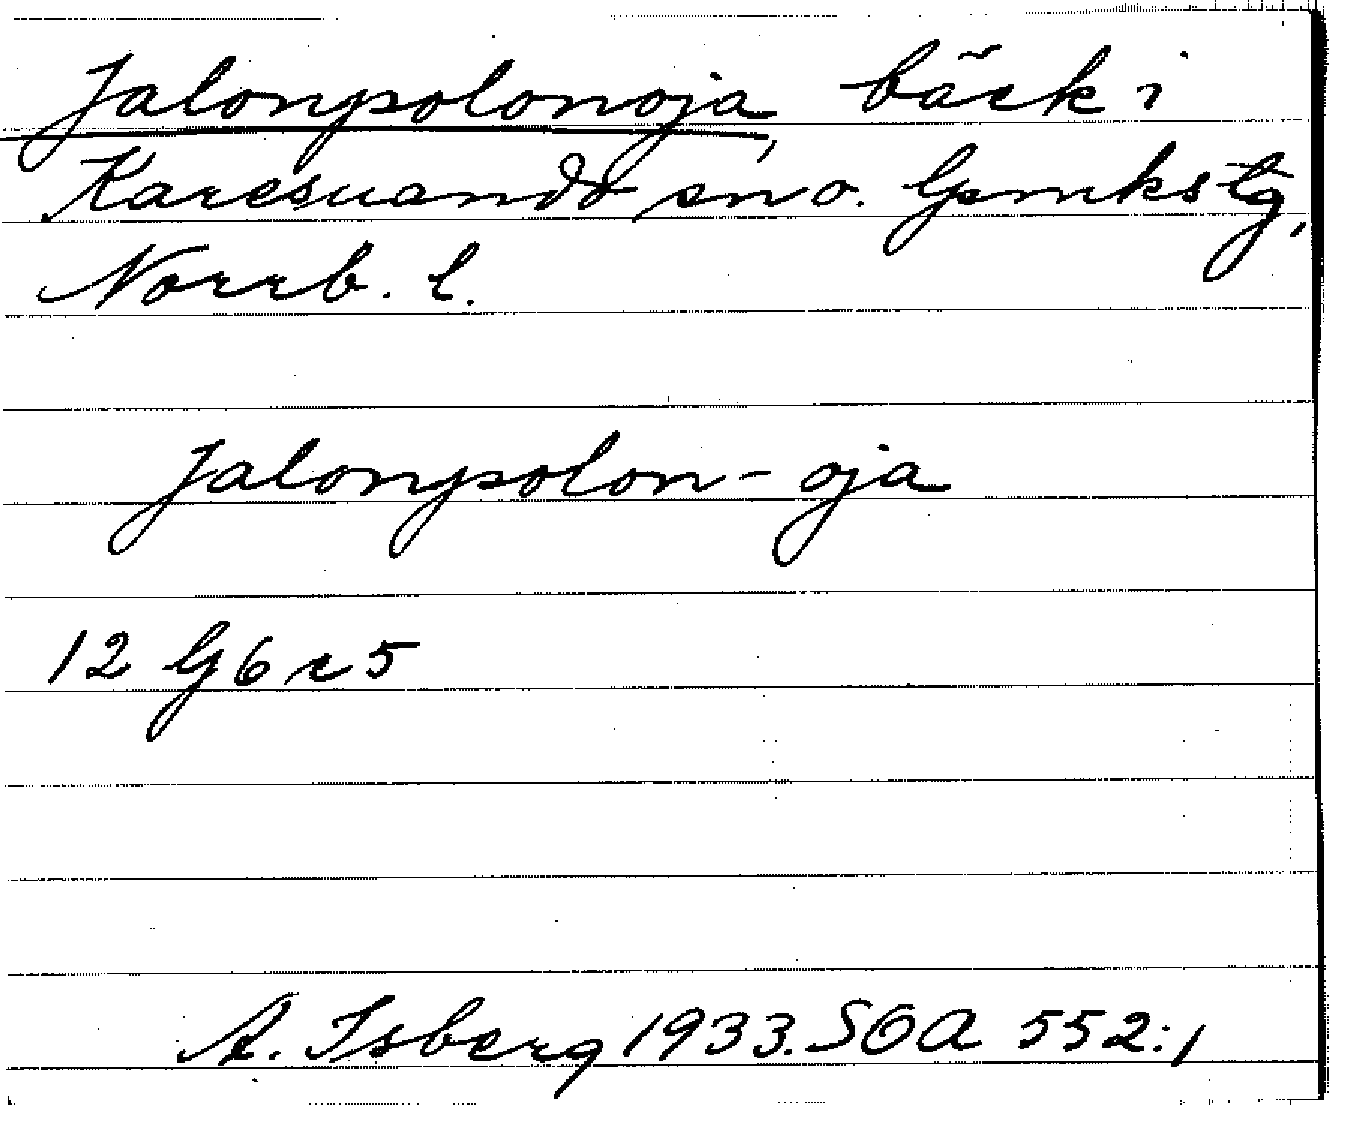 Jalonpolonoja, bäck i
Karesuando sn o. Gpmkstg,
Norrb. l.
Jalonpolon-oja
12 G 6 c 5
A. Isberg 1933. SOA 552:1